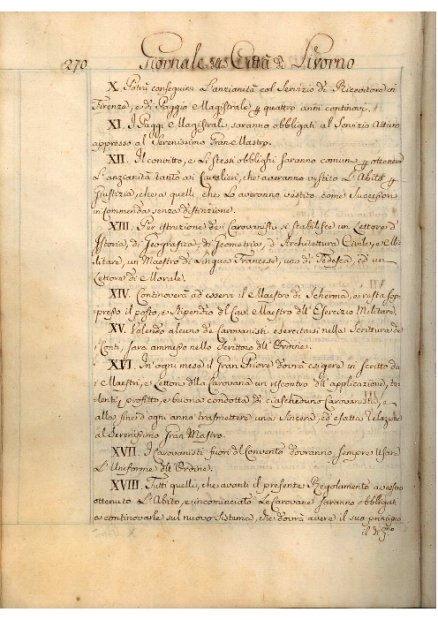 270 Giornale Città di Livorno
X. Potrà conseguirsi L'anzianità col Servizio di Ricevitore in
Firenze, e di Paggio Magistrale p quattro anni continovi.
XI. I Paggi Magistrali saranno obbligati al Servizio Attuale
appresso al Serenissimo Gran Mastro.
XII. Il convitto, e Li stessi obblighi saranno comuni p ottenere
L'anzianità tanto ai Cavalieri, che averanno vestito L'Abito p
Giustizia, che a quelli, che Lo avranno vestito come Successori
in Commenda senza distinzione.
XIII. Per istruzione de' Carovanisti si stabilisce un Lettore d'
Istoria, di Geografia, di Geometria, d'Architettura Civile, e Mi-
litare, un Maestro di Lingua Francese, uno di Tedesca, ed un
Lettore di Morale.
XIV. Continoverà ad esservi il Maestro di Scherma, e resta sop-
presso il posto, e Stipendio del Cav. Maestro dell'Esercizio Militare.
XV. Volendo alcuno de Carovanisti esercitarsi nella Scrittura de
i Conti, sarà ammesso nello Scrittoio dell'Ordine.
XVI. In ogni mese il Gran Priore dovrà esigere in scritto da
i Maestri, e Lettori della Carovana un riscontro dell'applicazione, ta-
lenti, profitto, e buona condotta di ciascheduno Carovanista, e
alla fine d'ogni anno trasmettere una Sincera, ed esatta Relazione
al Serenissimo Gran Mastro.
XVII. I Carovanisti fuori del Convento dovranno sempre usare
L'Uniforme dell'Ordine.
XVIII. Tutti quelli, che avanti il presente Regolamento avessero
ottenuto L'Abito, e incominciate Le Carovane saranno obbligati
a continovarle sul nuovo Sistema, che dovrà avere il suo principio
il dì p.mo